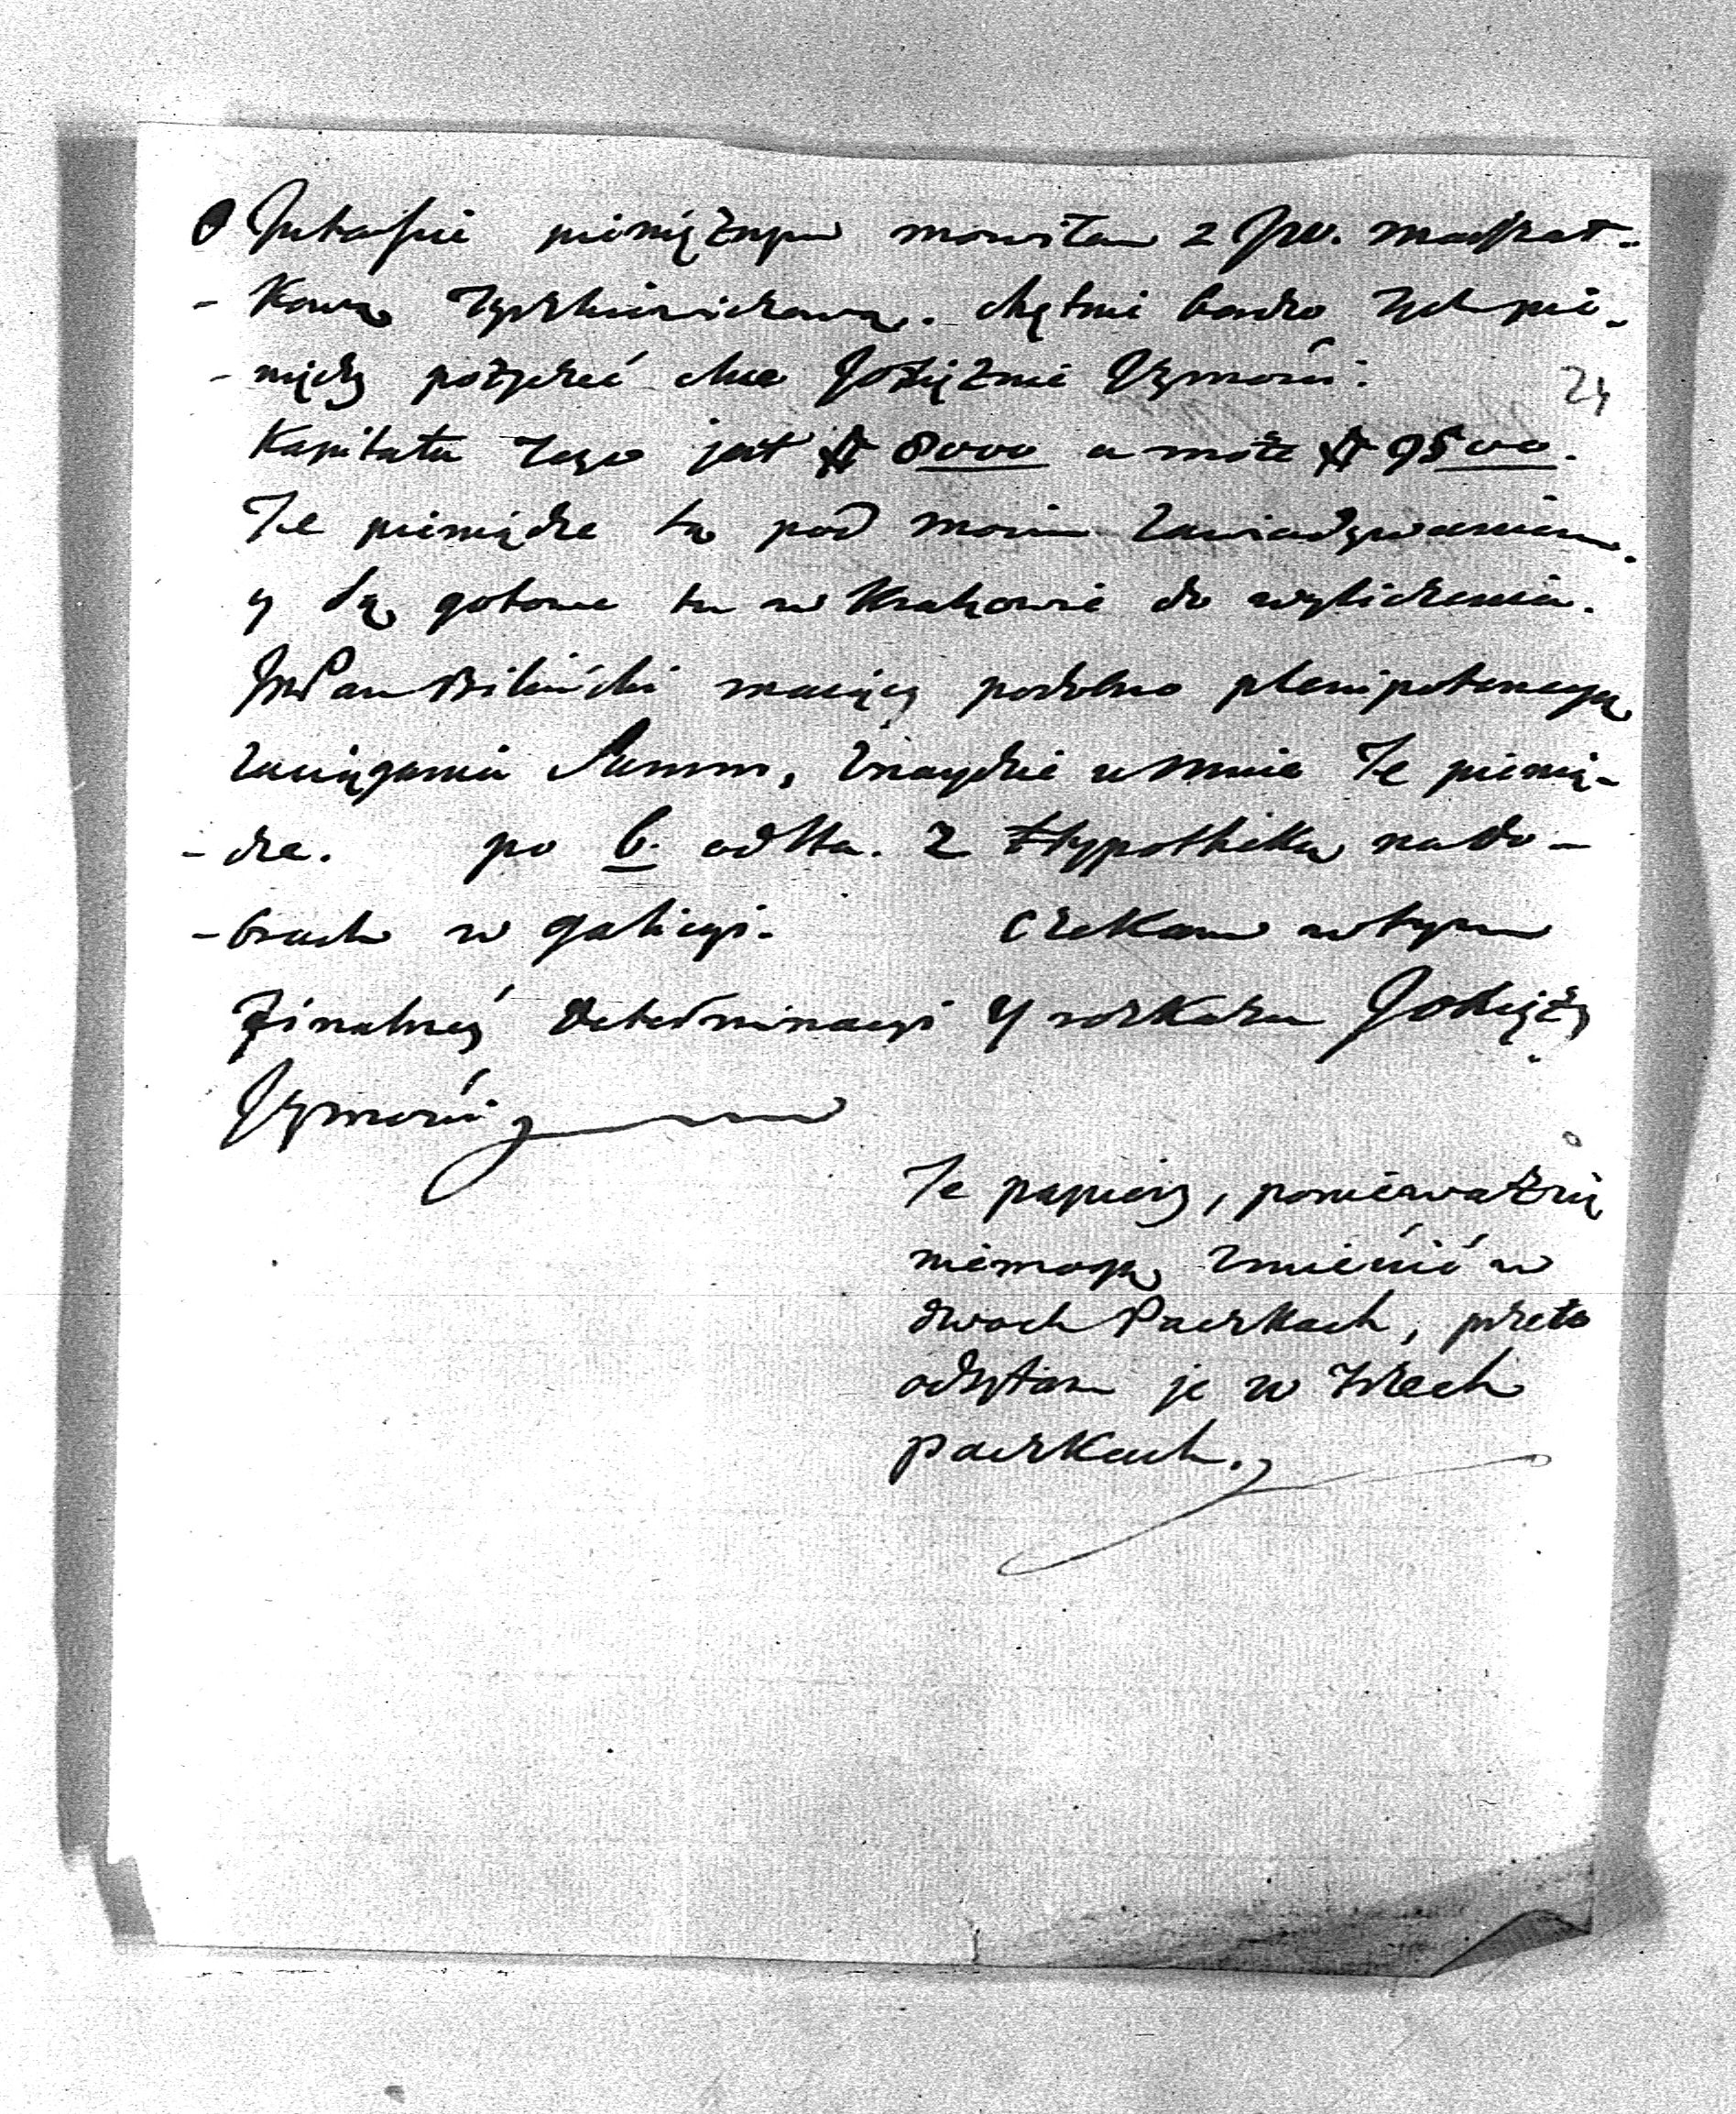 O Jnteressie pieniężnym mowiłem z JW. Marszał-
-kową Tyszkiewiczową. chętnie bardzo tych pie-
-niędzy pożyczeć chce JOXiężnie Jeymosci.
24
Kapitału tego jest # 8000 a może # 9500.
Te pieniądze są pod moim zawiadywaniem.
y są gotowe tu w Krakowie do wyliczenia.
JmPan Biliński maiący podobno plenipotencyą
zaciągania Summ, znaydzie u mnie Te pienią-
-dze. po 6. od sta. z Hypotheką na do-
-brach w galicyi. Czekam w tym
finalney determinacyi y rozkazu JOXiężny
Jeymosci
Te papiery, ponieważ się
niemogą zmieścić w
dwoch Paczkach, przeto
odsyłam je w trzech
paczkach.